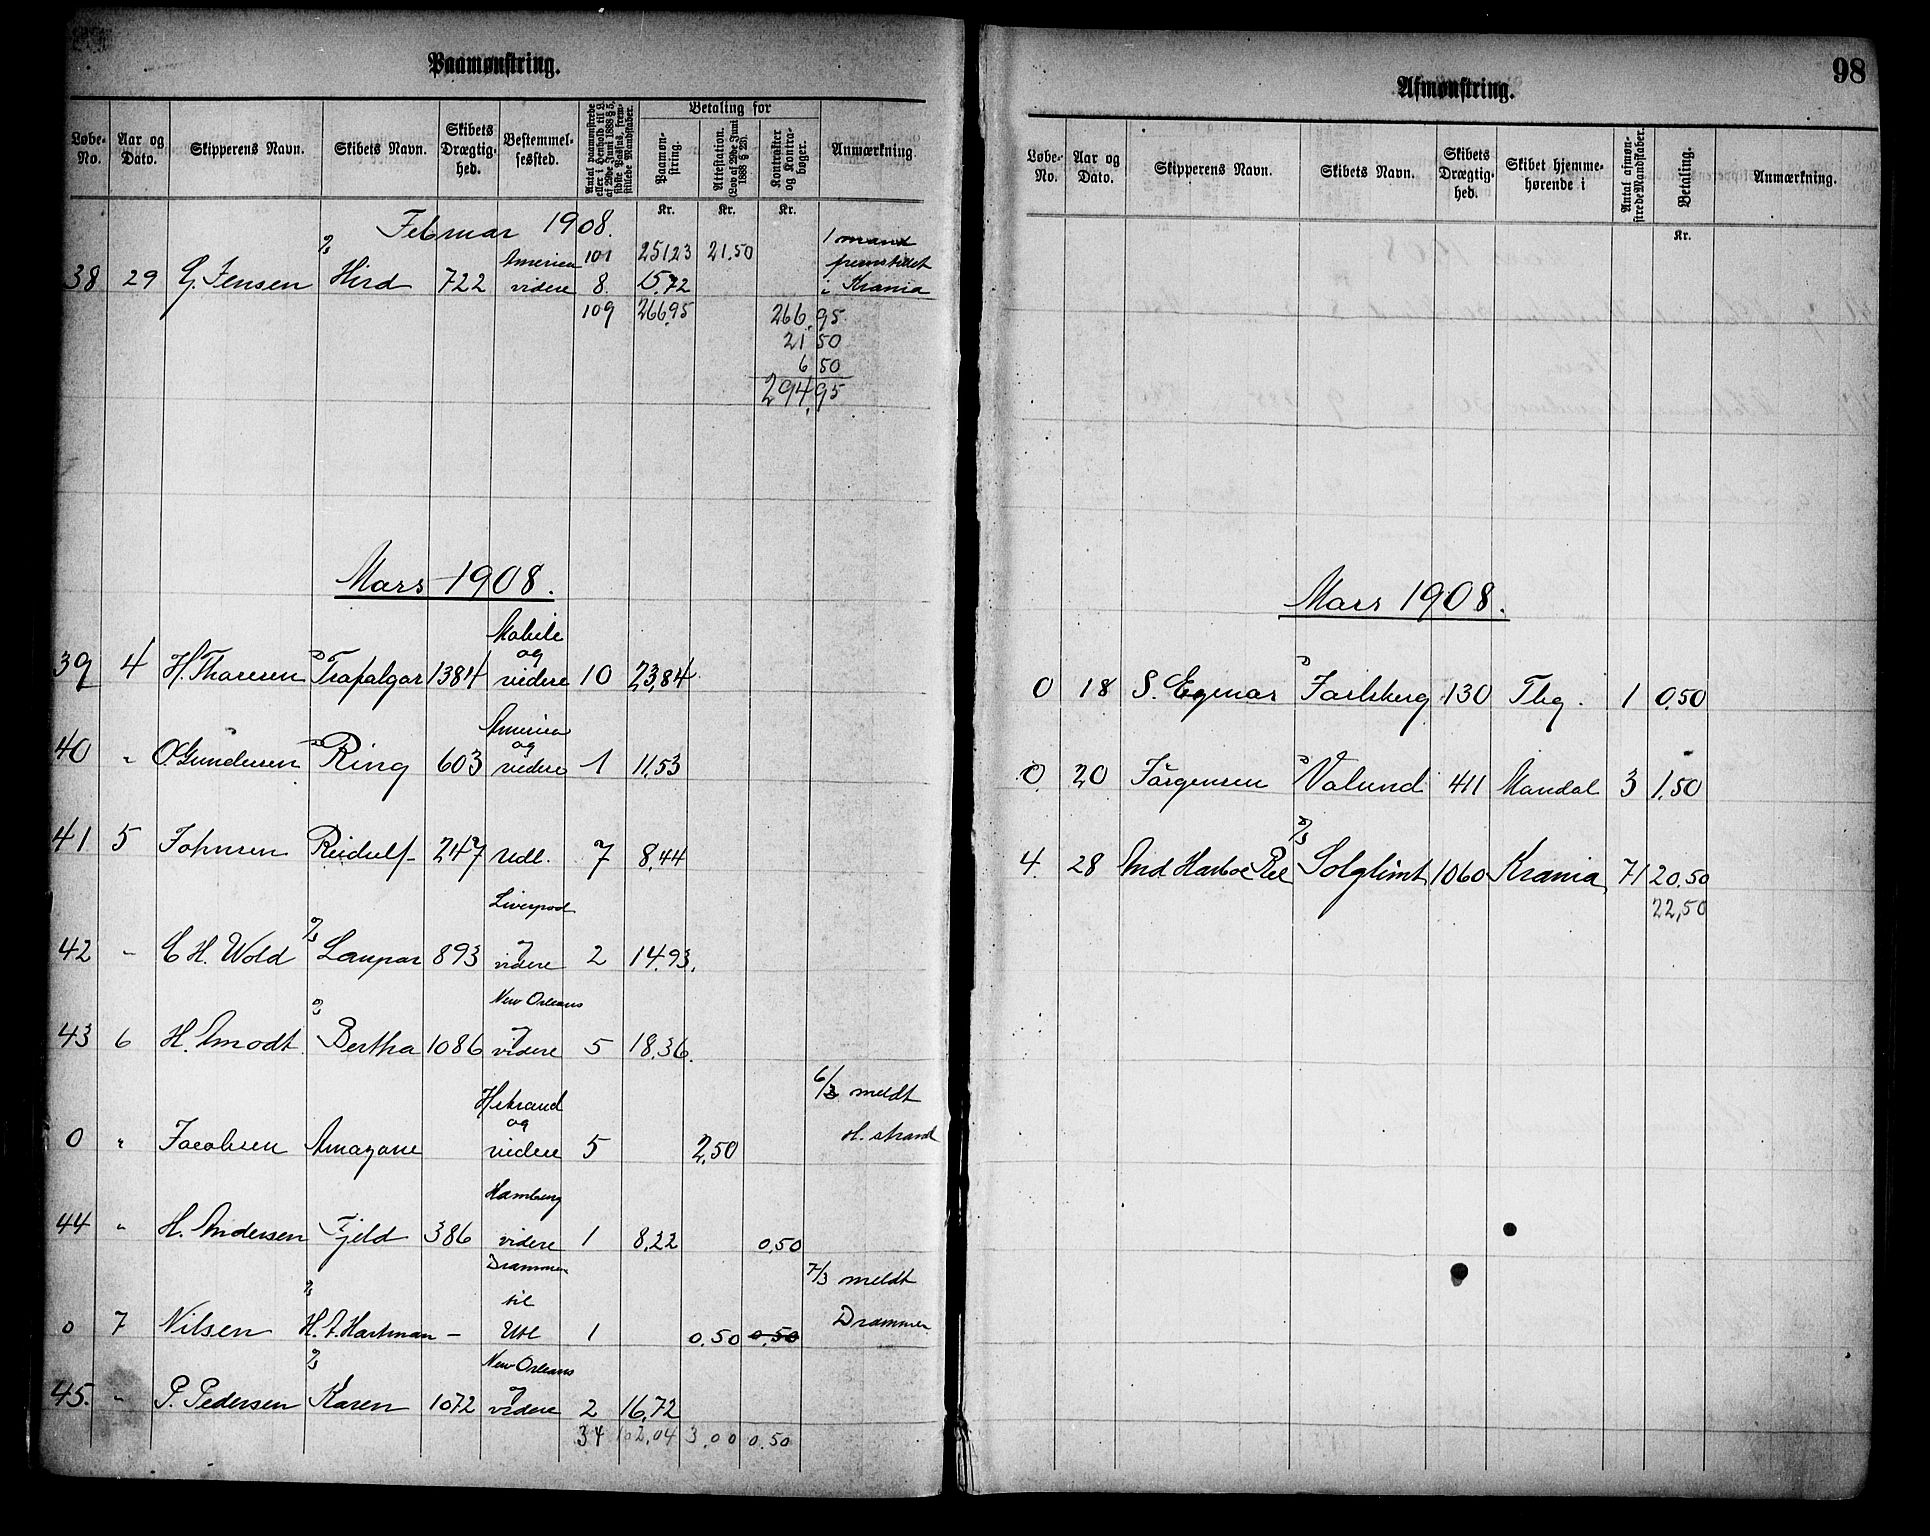 Paamønstring.
Løbe-No. Aar og Dato. Skipperens Navn. Skibets Navn. Skibets Drægtighed. Bestemmelsessted. Antal paamønstrede eller i Henhold til L. af 29de Juni 1888 § 5, sidste Passus, fremstillede Mandskaber. Betaling for Paamønstring. Attestation. (Lov af 29de Juni 1888 § 28). Kontrakter og Kontrabøger. Anmærkning.
Kr. Kr. Kr.
Februar 1908.
America 101 251,23 21,50 1 mand fremstidet
38 29 G. Jensen D/S Hird 722 videre 8. 15,72 i Krania
109 266,95 266,95
21 50
6 50
294,95
Mars 1908.
Mobile
og
39 4 H. Thoresen Trafalgar 1384 videre 10 23,84
America
og
40 " O Gundersen Ring 603 videre 1 11,53
41 5 Johnsen Reidulf 247 Udl. 7 8,44
Liverpool
42 " C H. Wold D/S Laupar 893 & videre 2 14,93.
New Orleans
43 6 H. Amodt. D/S Bertha 1086 & videre 5 18,36.
6/3 meldt
H strand
og
H. strand
0 " Jacobsen Amazone videre 5 2,50
Hamburg
44 " H. Andersen Fjeld 386 videre 1 8,22 0,50
Drammen
7/3 meldt
til
Drammen
0 7 Nilsen D/S H. A. Hartman – Udl 1 0,50 0,50
New Orleans
45. " P. Pedersen D/S Karen 1072 & videre 2 16,72
34 102,04 3,00 0,50
98
Afmønstring.
Løbe-No. Aar og Dato. Skipperens Navn. Skibets Navn. Skibets Drægtighed. Skibet hjemmehørende i Antal afmønstrede Mandskaber. Betaling. Anmærkning.
Kr.
Mars 1908.
0 18 S. Egmar Jarlsberg 130 Tbg. 1 0,50
0. 20 Jørgensen Valund 411 Mandal 3 1,50
4. 28 And Harboe Ree D/S Solglimt 1060 Krania 71 20,50
22,50